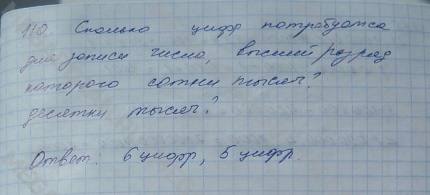 110. Сколько цифр потребуется
для записи числа, высший разряд
которого сотни тысяч?
десятки тысяч?
Ответ: 6 цифр, 5 цифр.